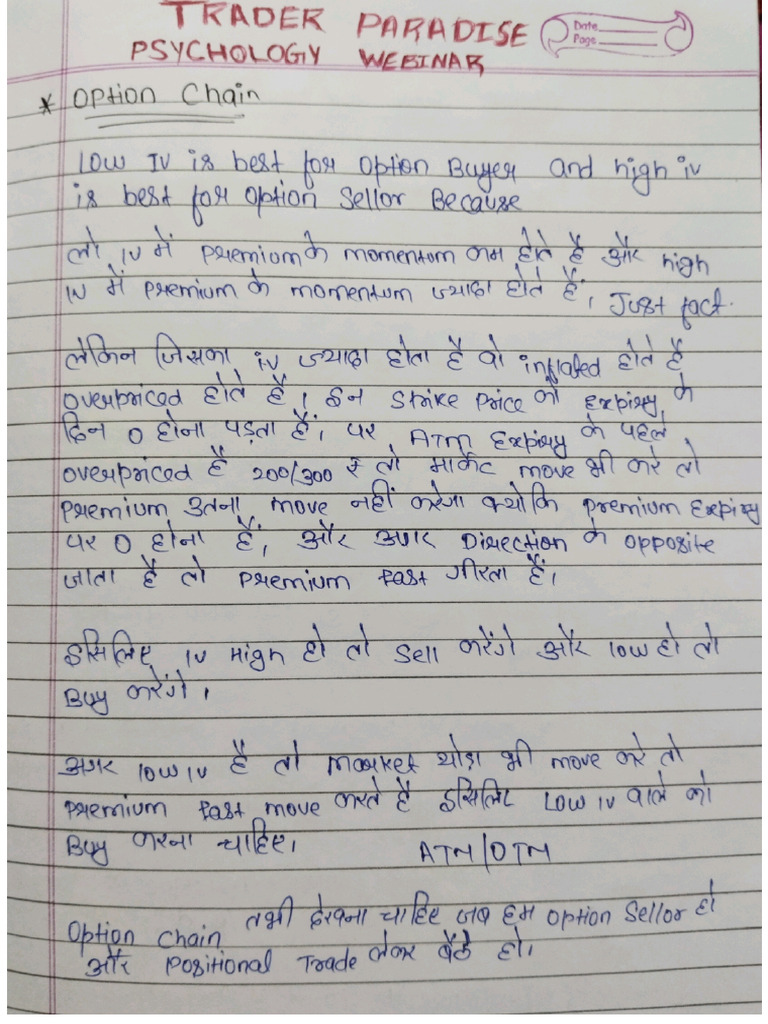 TRADER PARADISE
Date
Page
PSYCHOLOGY WEBINAR
* Option Chain
Low IV is best for Option Buyer and high iv
is best for Option Sellor Because
लो IV में Premium के momentum कम होते है और high
IV में Premium के momentum ज्यादा होते है, Just fact.
लेकिन जिसका iv ज्यादा होता है वो inflated होते है
overpriced होते है। इन Strike Price को Expiry के
दिन 0 होना पड़ता हैं, पर ATM Expiry के पहले
overpriced है 200/300 ₹ तो मार्केट move भी करे तो
Premium उतना move नहीं करेगा क्योकि premium Expiry
पर 0 होना हैं, और अगर Direction के opposite
जाता है तो Premium fast गीरता हैं।
इसिलिए IV High हो तो Sell करेंगे और low हो तो
Buy करेंगे।
अगर low IV है तो Market थोड़ा भी move करे तो
Premium fast move करते है इसिलिए Low IV वाले को
Buy करना चाहिए। ATM/OTM
Option Chain तभी देखना चाहिए जब हम Option Sellor हो
और Positional Trade लेकर बैठे हो।